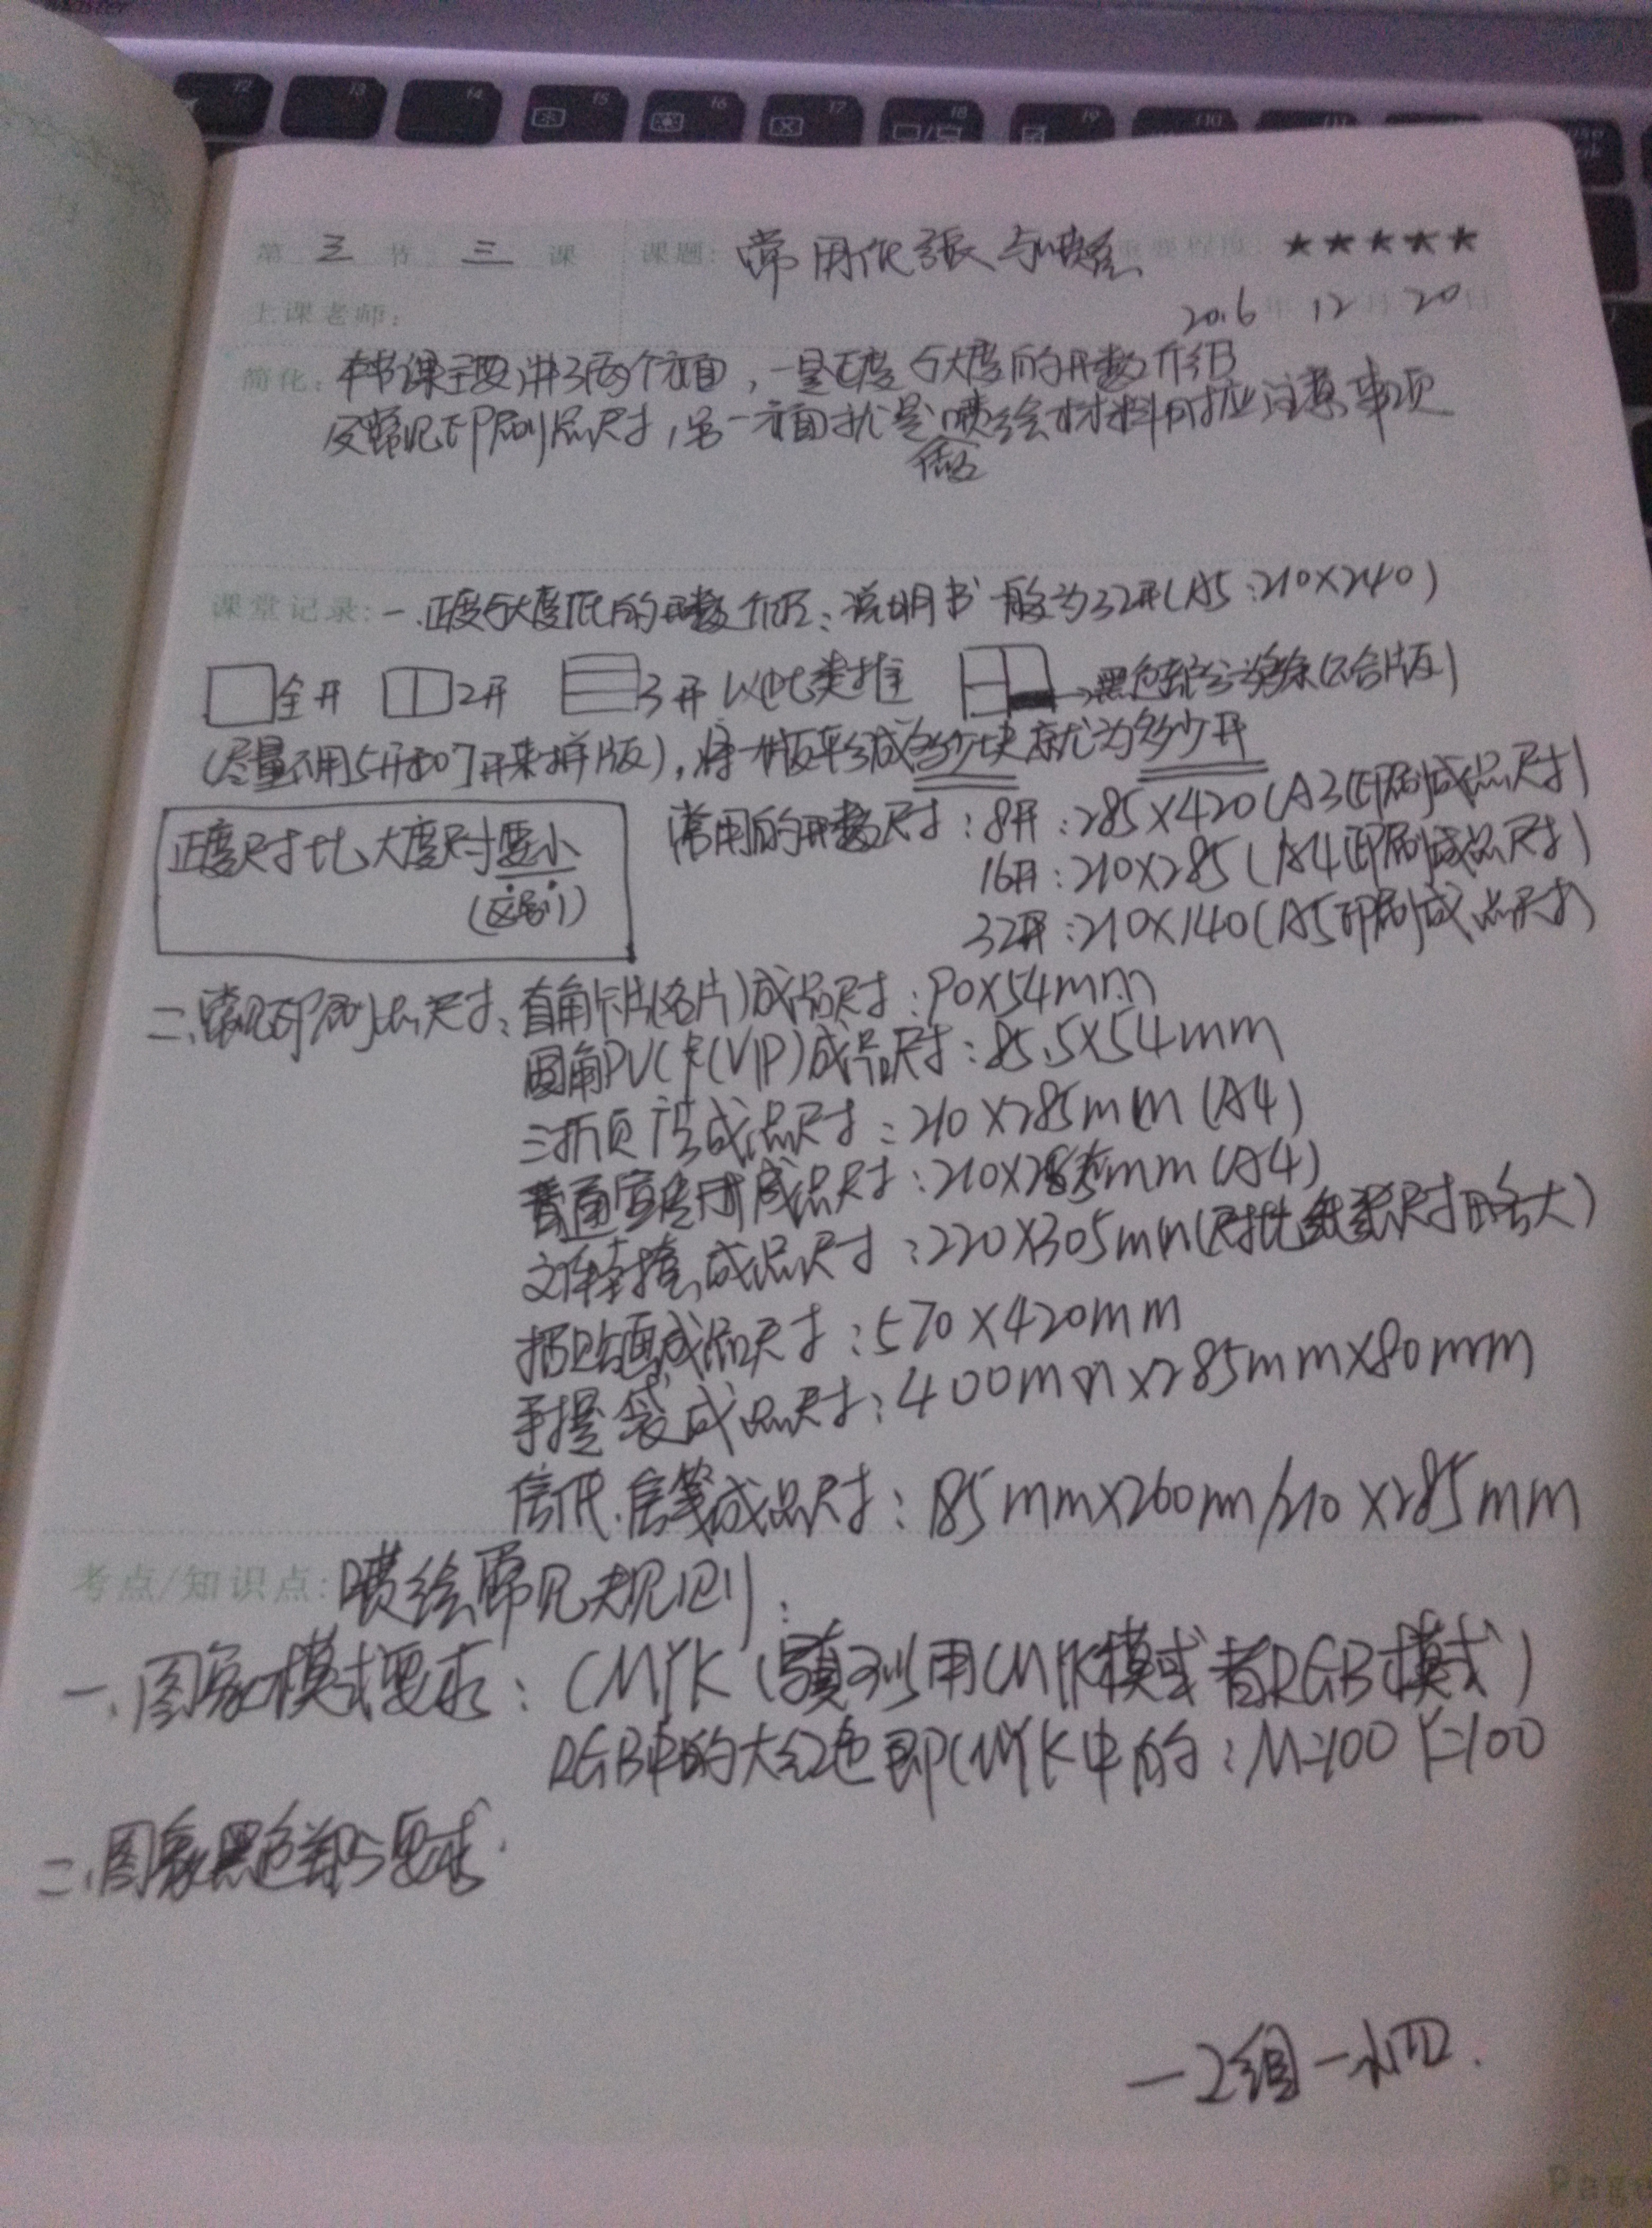 第 三 节 三 课 课题: 常用纸张与喷绘 重要程度: ★★★★★
上课老师: 2016 年 12 月 20 日
简化: 本节课主要讲了两个方面,一是正度与大度的开数介绍
及常见印刷品尺寸,另一方面就是喷绘材料的对应注意事项
课堂记录: 一.正度与大度纸的开数介绍: 说明书一般为32开(A5:210×240)
全开 2开 3开 以此类推 黑色部分为 (不合版)
(尽量不用5开和7开来拼版),将一张版平分成多少块就为多少开
正度尺寸比大度尺寸要小
(区别)
常用的开数尺寸:8开:285×420(A3印刷成品尺寸)
16开:210×285(A4印刷成品尺寸)
32开:210×140(A5印刷成品尺寸)
二.常见印刷品尺寸: 直角卡片(名片)成品尺寸:90×54mm
圆角PVC卡(VIP)成品尺寸:85.5×54mm
三折页广告成品尺寸:210×285mm(A4)
普通宣传册成品尺寸:210×285mm(A4)
文件封套成品尺寸:220×305mm(尺寸比纸张尺寸略大)
招贴画成品尺寸:570×420mm
手提袋成品尺寸:400mm×285mm×80mm
信纸.信笺成品尺寸:185mm×260mm/210×285mm
考点/知识点: 喷绘常见规则:
一.图象模式要求: CMYK( 用CMYK模式 者RGB模式)
RGB中的大红色即CMYK中的:M=100 Y=100
二.图象黑色部分要求.
一2组一
Page